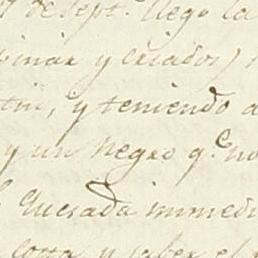 de Sept. llego la
y criados)
tin, y teniendo a
y un Negro q.e no
Quesada inmedi
costa, y saber el